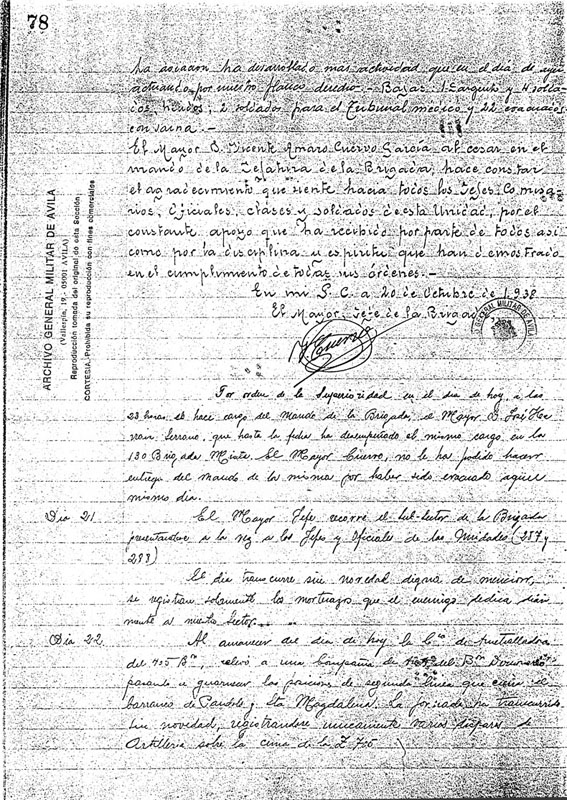 78
ha asiacion ha desarrollado mas actividad que en el dia de ayer
actuando por nuestro flanco derecho - Bajas. 1 Sargento y 4 solda-
dos, heridos, 2 soldados para el Tribunal medico y 22 evacuados
con sarna.-
El Mayor D. Vicente Amaro Cuervo Garcia al cesar en el
mando de la Jefatura de la Brigada, hace constar
el agradecimiento que siente hacia todos los Jefes, Comisa-
rios, Oficiales, clases y soldados de esta Unidad, por el
constante apoyo que ha recibido por parte de todos asi
como por la disciplina y espiritu que han demostrado
en el cumplimiento de todas sus órdenes.-
En mi P. C. a 20 de Octubre de 1.938
El Mayor Jefe de la Brigada
Cuervo
ARCHIVO GENERAL MILITAR DE AVILA
(Vallespin, 19.- 05001 AVILA)
Reproducción tomada del original de esta Sección
CORTESIA. Prohibida su reproducción con fines comerciales
GENERAL MILITAR DE AVILA
Por orden de la Superioridad en el dia de hoy a las
23 horas se hace cargo del Mando de la Brigada, el Mayor D. José
Serrano, que hasta la fecha ha desempeñado el mismo cargo en la
130 Brigada Mixta. El Mayor Cuervo, no le ha podido hacer
entrega del mando de la misma por haber sido evacuado aquel
mismo dia.
Dia 21 El Mayor Jefe recorre el sub-sector de la Brigada
presentandose a la vez a los Jefes y Oficiales de las Unidades (287 y
288)
El dia transcurre sin novedad digna de mencion,
se registran solamente los morterazos que el enemigo dedica diaria-
mente a nuestro Sector.
Dia 22. Al amanecer del dia de hoy la Cia de Ametralladoras
del 705 Bon, relevó a una Compañia de del Bon
pasando a guarnecer las posiciones de segunda linea que cierra el
barranco de Pandols, y Sta Magdalena. La jornada ha transcurrido
sin novedad, registrandose unicamente varios disparos de
Artilleria sobre la cima de la Z 705